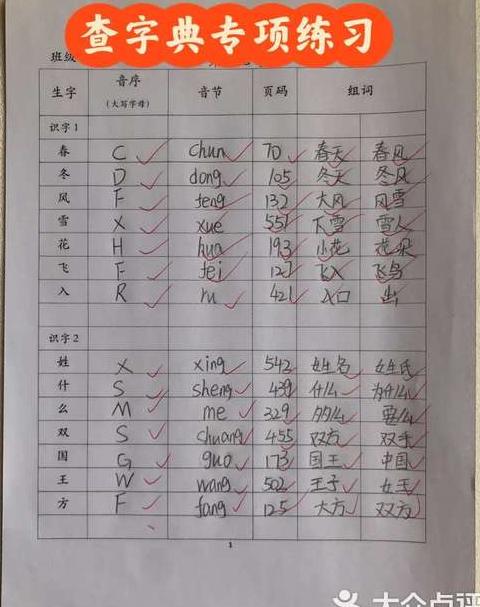 查字典专项练习
班级
生字 音序（大写字母） 音节 页码 组词
识字1
春 C chun 70 春天 春风
冬 D dong 105 冬天 冬风
风 F feng 132 大风 风雪
雪 X xue 551 下雪 雪人
花 H hua 193 小花 花朵
飞 F fei 127 飞入 飞鸟
入 R ru 421 入口 出
识字2
姓 X xing 542 姓名 姓氏
什 S sheng 439 什么 为什么
么 M me 329 多么 要么
双 S shuang 455 双方 双手
国 G guo 173 国王 中国
王 W wang 502 王子 女王
方 F fang 125 大方 双方
1
大众点评